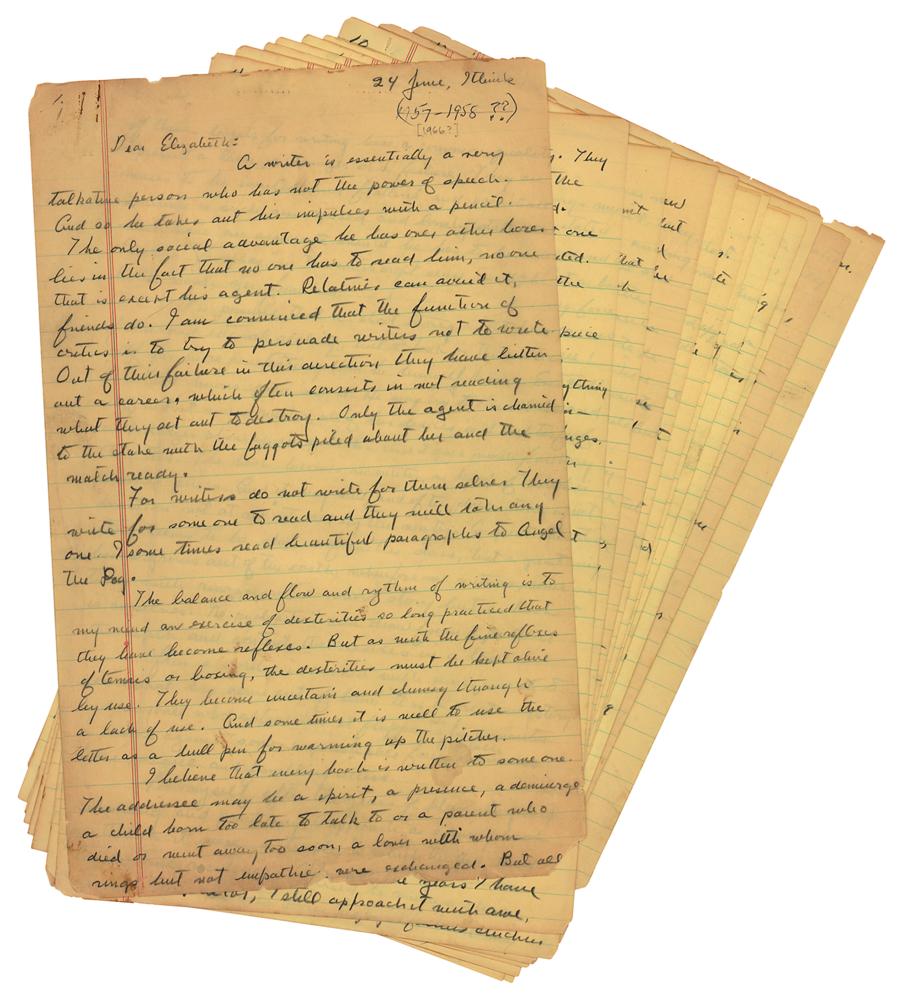 24 June, I think
(1957-1958 ??)
[1966?]
Dear Elizabeth:
A writer is essentially a very
talkative person who has not the power of speech.
And so he takes out his impulses with a pencil.
The only social advantage he has over other bores
lies in the fact that no one has to read him, no one
that is except his agent. Relatives can avoid it,
friends do. I am convinced that the function of
critics is to try to persuade writers not to write.
Out of their failure in this direction they have bitten
out a career, which often consists in not reading
what they set out to destroy. Only the agent is chained
to the stake with the faggots piled about her and the
match ready.
For writers do not write for them selves They
write for some one to read and they will take any
one. I some times read beautiful paragraphs to Angel
the Dog.
The balance and flow and rythm of writing is to
my mind an exercise of dexterities so long practiced that
they have become reflexes. But as with the fine reflexes
of tennis or boxing, the dexterities must be kept alive
by use. They become uncertain and clumsy through
a lack of use. And some times it is well to use the
letter as a bull pen for warming up the pitcher.
I believe that every book is written to some one.
The addressee may be a spirit, a presence, a demiurge
a child born too late to talk to or a parent who
died or went away too soon, a lover with whom
rings but not empathies were exchanged. But all
years I have
I still approach it with awe,
They
the
one
the